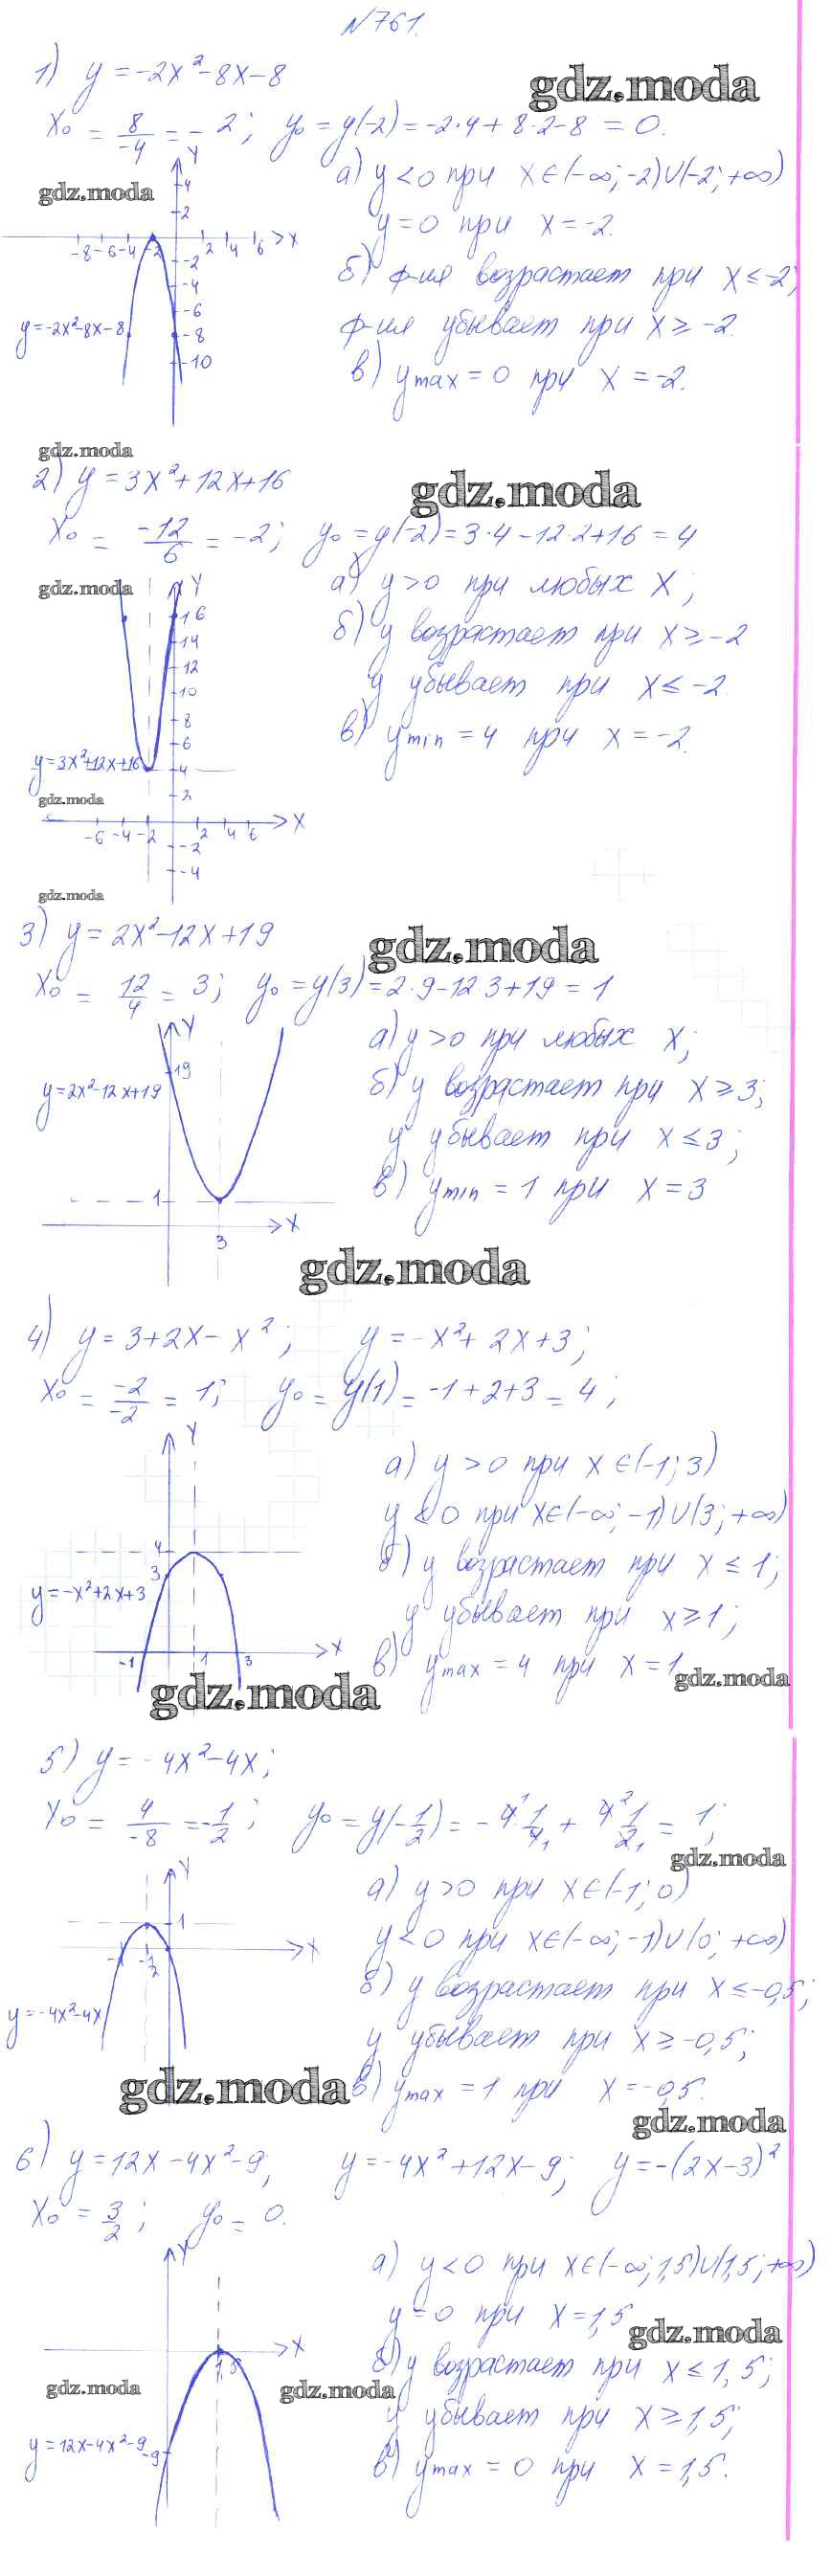 №761.
1) y = -2x² - 8x - 8
gdz.moda
x₀ = 8/-4 = -2; y₀ = y(-2) = -2·4 + 8·2 - 8 = 0.
а) y < 0 при x ∈ (-∞; -2) ∪ (-2; +∞)
gdz.moda
y = 0 при x = -2.
б) ф-ия возрастает при x ≤ -2;
ф-ия убывает при x ≥ -2.
в) y max = 0 при x = -2.
Y
4
2
-8 -6 -4 -2 2 4 6 X
-2
-4
-6
-8
-10
y = -2x² - 8x - 8
gdz.moda
2) y = 3x² + 12x + 16
gdz.moda
x₀ = -12/6 = -2; y₀ = y(-2) = 3·4 - 12·2 + 16 = 4
gdz.moda
а) y > 0 при любых x;
б) y возрастает при x ≥ -2
y убывает при x ≤ -2.
в) y min = 4 при x = -2.
Y
16
14
12
10
8
6
4
2
y = 3x² + 12x + 16
gdz.moda
-6 -4 -2 2 4 6 X
-2
-4
gdz.moda
3) y = 2x² - 12x + 19
gdz.moda
x₀ = 12/4 = 3; y₀ = y(3) = 2·9 - 12·3 + 19 = 1
а) y > 0 при любых x;
б) y возрастает при x ≥ 3;
y убывает при x ≤ 3;
в) y min = 1 при x = 3
Y
19
y = 2x² - 12x + 19
1
X
3
gdz.moda
4) y = 3 + 2x - x²; y = -x² + 2x + 3;
x₀ = -2/-2 = 1; y₀ = y(1) = -1 + 2 + 3 = 4;
а) y > 0 при x ∈ (-1; 3)
y < 0 при x ∈ (-∞; -1) ∪ (3; +∞)
б) y возрастает при x ≤ 1;
y убывает при x ≥ 1;
в) y max = 4 при x = 1
gdz.moda
Y
4
3
y = -x² + 2x + 3
-1 1 3 X
gdz.moda
5) y = -4x² - 4x;
x₀ = 4/-8 = -1/2; y₀ = y(-1/2) = -4¹·1/4₁ + 4²·1/2₁ = 1;
gdz.moda
а) y > 0 при x ∈ (-1; 0)
y < 0 при x ∈ (-∞; -1) ∪ (0; +∞)
б) y возрастает при x ≤ -0,5;
y убывает при x ≥ -0,5;
в) y max = 1 при x = -0,5.
Y
1
-1 -1/2 X
y = -4x² - 4x
gdz.moda
gdz.moda
6) y = 12x - 4x² - 9; y = -4x² + 12x - 9; y = -(2x - 3)²
x₀ = 3/2; y₀ = 0.
а) y < 0 при x ∈ (-∞; 1,5) ∪ (1,5; +∞)
y = 0 при x = 1,5
gdz.moda
б) y возрастает при x ≤ 1,5;
y убывает при x ≥ 1,5;
в) y max = 0 при x = 1,5.
Y
X
1,5
gdz.moda
gdz.moda
y = 12x - 4x² - 9
-9